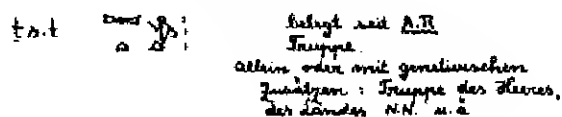 ṯs.t belegt seit A.R
Truppe.
allein oder mit genetivischen
Zusätzen : Truppe des Heeres,
des Landes N.N. u.ä